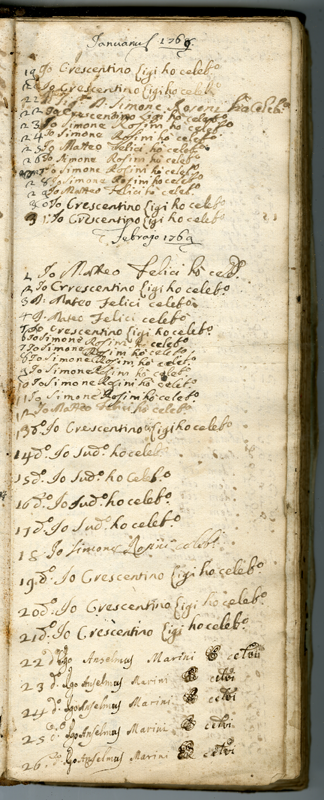 Januarius 1769
19 Io Crescentino Ligi ho celeb.o
Io Crescentino Ligi ho celeb.o
22 Simone
22 Io Crescentino Ligi ho celeb.o
23 Io Simone Rosini ho celeb.o
24 Io Simone Rosini ho celeb.o
25 Io Matteo Felici ho celeb.o
26 Io Simone Rosini ho celeb.o
Io Simone Rosini ho celeb.o
28 Io Simone Rosini ho celeb.o
Io Matteo Felici ho celeb.
30 Io Crescentino Ligi ho celeb.o
31 Io Crescentino Ligi ho celeb.o
Febraro 1769
Io Matteo Felici ho celeb.o
Io Crescentino Ligi ho celeb.o
3 D. Mateo Felici celebro
4 D. Mateo Felici celebro
Io Crescentino Ligi ho celeb.o
6 Io Simone Rosini ho celeb.o
7 Io Simone Rosini ho celeb.o
8 Io Simone Rosini ho celeb.o
9 Io Simone Rosini ho celeb.o
10 Io Simone Rosini ho celeb.o
11 Io Simone Rosini ho celeb.o
12 Io Matteo Felici ho celeb.o
13 d.o Io Crescentino Ligi ho celeb.o
14 d.o Io Sud.o ho celeb.
15 d.o Io Sud.o ho Celeb.o
16 d.o Io Sud.o ho celeb.o
17 d.o Io Sud.o ho celeb.o
18 Io Simone Rosini celeb.o
19 d.o Io Crescentino Ligi ho celeb.o
20 d.o Io Crescentino Ligi ho celeb.o
21 d.o Io Crescentino Ligi ho celeb.o
22 d.o Ego Anselmus Marini
23 d.o Ego Anselmus Marini
24 d.o Ego Anselmus Marini
25 d.o Ego Anselmus Marini
26 d.o Ego Anselmus Marini